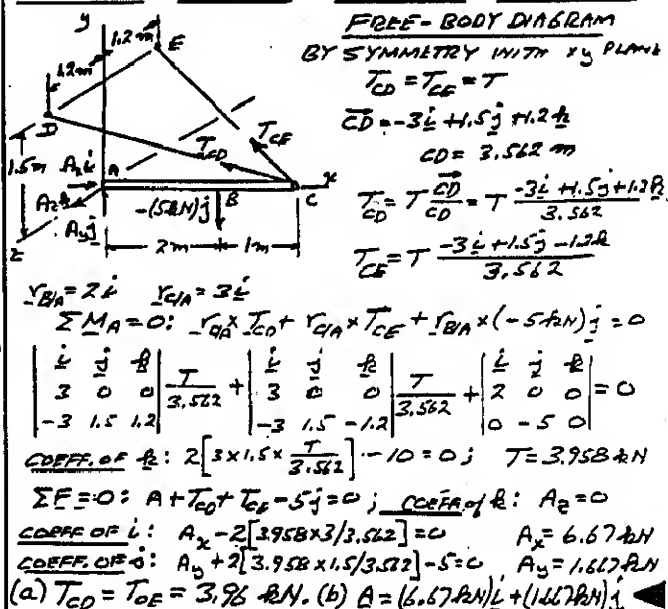 FREE-BODY DIAGRAM
BY SYMMETRY WITH xy PLANE
T_CD = T_CE = T
CD = -3i + 1.5j + 1.2k
CD = 3.562 m
T_CD = T CD/CD = T (-3i + 1.5j + 1.2k)/3.562
T_CE = T (-3i + 1.5j - 1.2k)/3.562
y
1.2m
E
1.2m
D
T_CE
T_CD
1.5m
A_x i
A
x
A_z k
B
C
-(5kN)j
A_y j
z
2m
1m
r_B/A = 2i r_C/A = 3i
ΣM_A = 0: r_C/A × T_CD + r_C/A × T_CE + r_B/A × (-5kN)j = 0
|i j k| |i j k| |i j k|
|3 0 0| T/3.562 + |3 0 0| T/3.562 + |2 0 0| = 0
|-3 1.5 1.2| |-3 1.5 -1.2| |0 -5 0|
COEFF. OF k: 2[3×1.5× T/3.562] - 10 = 0; T = 3.958 kN
ΣF = 0: A + T_CD + T_CE - 5j = 0; COEFF. of k: A_z = 0
COEFF OF i: A_x - 2[3.958×3/3.562] = 0 A_x = 6.67 kN
COEFF. OF j: A_y + 2[3.958×1.5/3.562] - 5 = 0 A_y = 1.667 kN
(a) T_CD = T_CE = 3.96 kN. (b) A = (6.67 kN)i + (1.667 kN)j